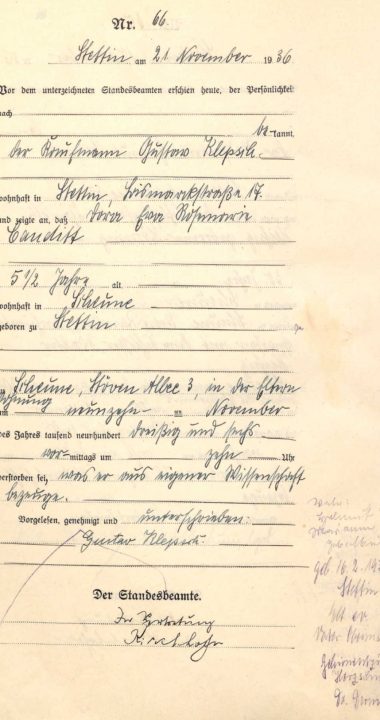 Nr. 66
Stettin am 21 November 1936
Vor dem unterzeichneten Standesbeamten erschien heute, der Persönlichkei
nach
be=kannt,
der Kaufmann Gustav
wohnhaft in Stettin, Bismarckstraße 17.
und zeigte an, daß Dora Eva Rosemarie
Canditt
5 1/2 Jahre alt
wohnhaft in Scheune
geboren zu Stettin
Scheune, Stöven Allee 3, in der Eltern
Wohnung neunzehn- November
des Jahres tausend neunhundert dreißig und sechs
vor-mittags um zehn Uhr
verstorben sei, was er aus eigener Wissenschaft
bezeuge.
Vorgelesen, genehmigt und unterschrieben:
Gustav
Der Standesbeamte.
In Vertretung
geb 16. 2. 193
Stettin